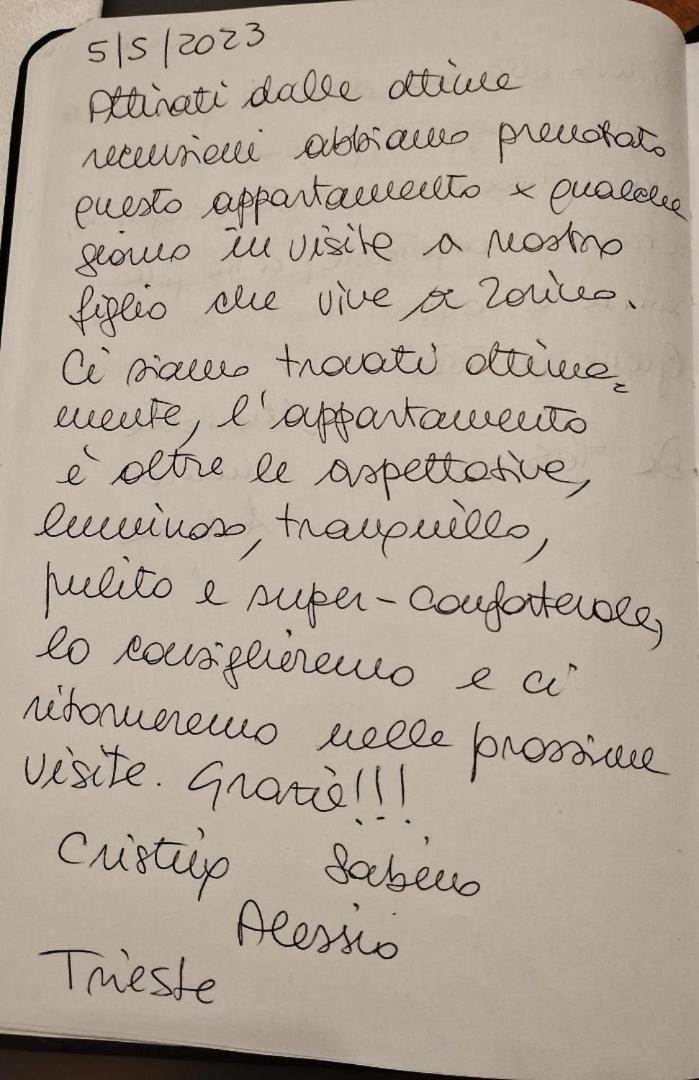 5/5/2023
Attirati dalle ottime
recensioni abbiamo prenotato
questo appartamento x qualche
giorno in visita a nostro
figlio che vive a Torino.
Ci siamo trovati ottima=
mente, l'appartamento
è oltre le aspettative,
luminoso, tranquillo,
pulito e super-confortevole,
lo consiglieremo e ci
ritorneremo nelle prossime
visite. Grazie!!!
Sabino
Alessio
Trieste